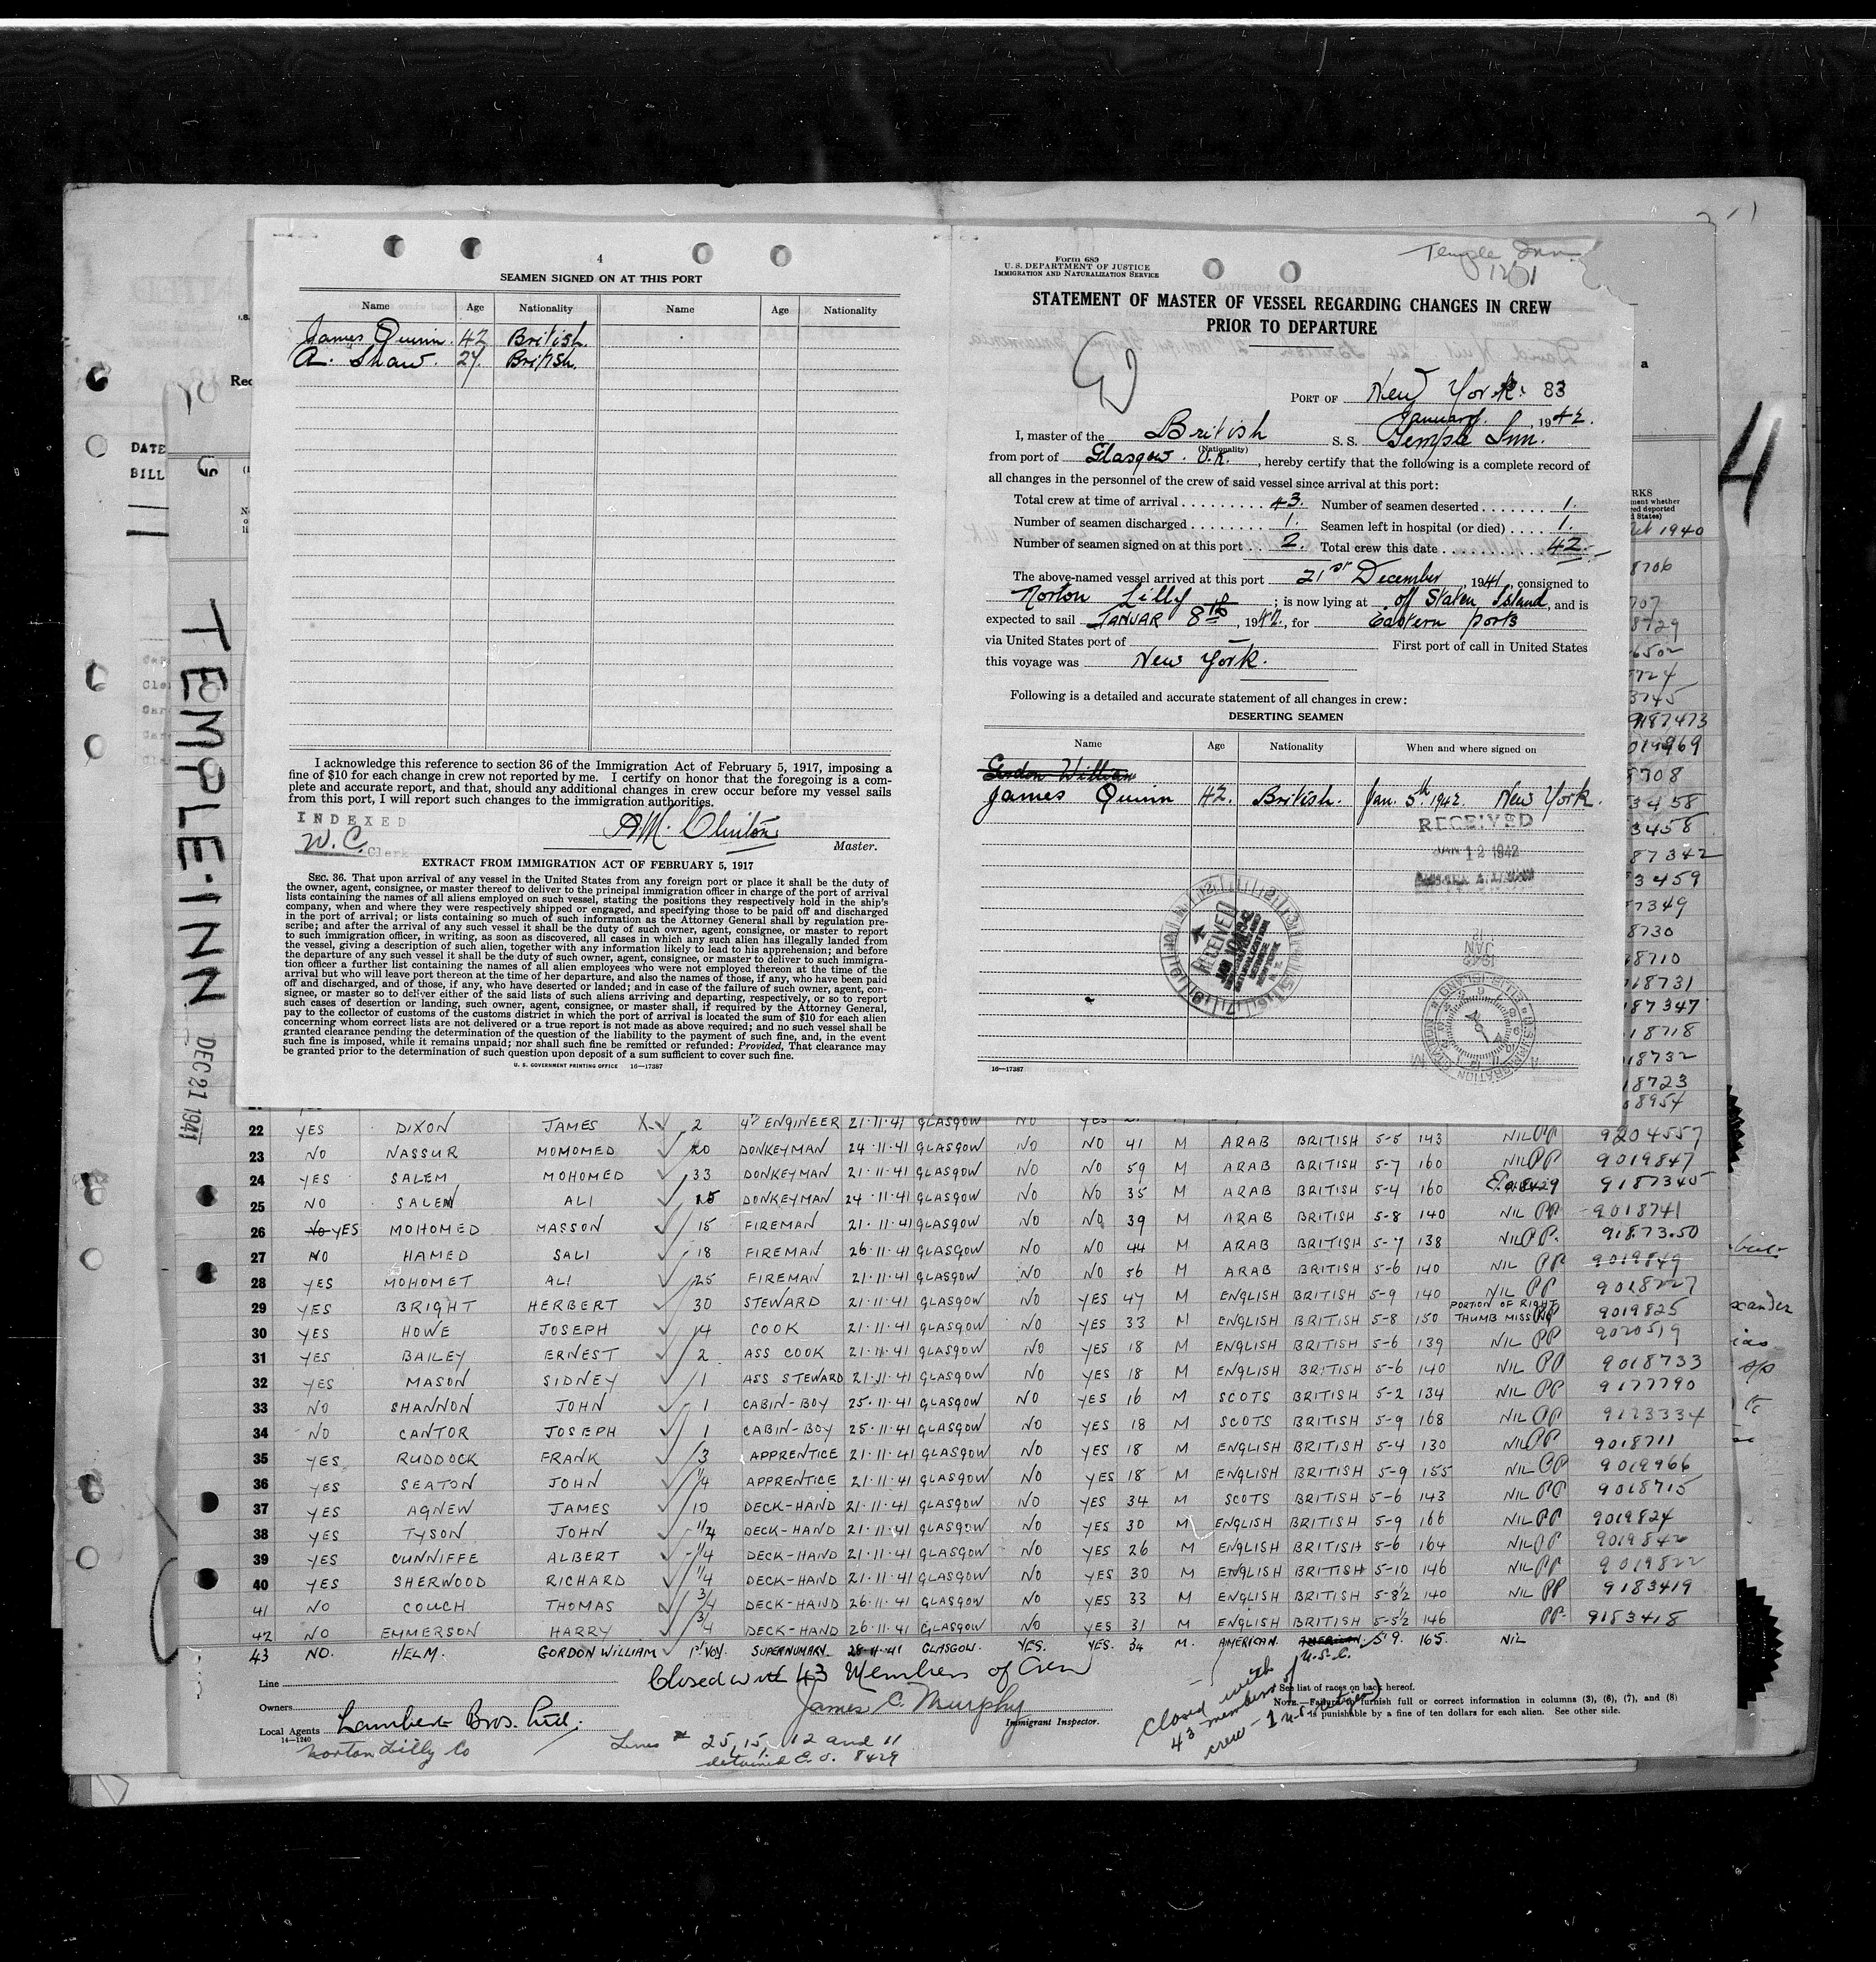 4
SEAMEN SIGNED ON AT THIS PORT
Name Age Nationality Name Age Nationality
James Quinn. 42 British.
A. Shaw. 27. British.
I acknowledge this reference to section 36 of the Immigration Act of February 5, 1917, imposing a
fine of $10 for each change in crew not reported by me. I certify on honor that the foregoing is a com-
plete and accurate report, and that, should any additional changes in crew occur before my vessel sails
from this port, I will report such changes to the immigration authorities.
INDEXED
W. C. Clerk
A.M. Clinton Master.
EXTRACT FROM IMMIGRATION ACT OF FEBRUARY 5, 1917
SEC. 36. That upon arrival of any vessel in the United States from any foreign port or place it shall be the duty of
the owner, agent, consignee, or master thereof to deliver to the principal immigration officer in charge of the port of arrival
lists containing the names of all aliens employed on such vessel, stating the positions they respectively hold in the ship's
company, when and where they were respectively shipped or engaged, and specifying those to be paid off and discharged
in the port of arrival; or lists containing so much of such information as the Attorney General shall by regulation pre-
scribe; and after the arrival of any such vessel it shall be the duty of such owner, agent, consignee, or master to report
to such immigration officer, in writing, as soon as discovered, all cases in which any such alien has illegally landed from
the vessel, giving a description of such alien, together with any information likely to lead to his apprehension; and before
the departure of any such vessel it shall be the duty of such owner, agent, consignee, or master to deliver to such immigra-
tion officer a further list containing the names of all alien employees who were not employed thereon at the time of the
arrival but who will leave port thereon at the time of her departure, and also the names of those, if any, who have been paid
off and discharged, and of those, if any, who have deserted or landed; and in case of the failure of such owner, agent, con-
signee, or master so to deliver either of the said lists of such aliens arriving and departing, respectively, or so to report
such cases of desertion or landing, such owner, agent, consignee, or master shall, if required by the Attorney General,
pay to the collector of customs of the customs district in which the port of arrival is located the sum of $10 for each alien
concerning whom correct lists are not delivered or a true report is not made as above required; and no such vessel shall be
granted clearance pending the determination of the question of the liability to the payment of such fine, and, in the event
such fine is imposed, while it remains unpaid; nor shall such fine be remitted or refunded: Provided, That clearance may
be granted prior to the determination of such question upon deposit of a sum sufficient to cover such fine.
U. S. GOVERNMENT PRINTING OFFICE 16—17387
Form 689
U. S. DEPARTMENT OF JUSTICE
IMMIGRATION AND NATURALIZATION SERVICE
Temple Inn
STATEMENT OF MASTER OF VESSEL REGARDING CHANGES IN CREW
PRIOR TO DEPARTURE
PORT OF New York. 83
January, 1942.
I, master of the British S. S. Temple Inn.
(Nationality)
from port of Glasgow. U.K., hereby certify that the following is a complete record of
all changes in the personnel of the crew of said vessel since arrival at this port:
Total crew at time of arrival 43. Number of seamen deserted 1.
Number of seamen discharged 1. Seamen left in hospital (or died) 1.
Number of seamen signed on at this port 2. Total crew this date 42.
The above-named vessel arrived at this port 21st December, 1941, consigned to
Norton Lilly; is now lying at off Staten Island, and is
expected to sail JANUAR 8th, 1942, for Eastern ports
via United States port of — First port of call in United States
this voyage was New York.
Following is a detailed and accurate statement of all changes in crew:
DESERTING SEAMEN
Name Age Nationality When and where signed on
Gordon William
James Quinn 42. British. Jan. 5th 1942. New York.
RECEIVED
JAN 12 1942
16—17387
4
DATE
BILL
TEMPLE-INN DEC 21 1941
22 YES DIXON JAMES X 2 4th ENGINEER 21·11·41 GLASGOW NO YES
23 NO NASSUR MOMOMED 20 DONKEYMAN 24·11·41 GLASGOW NO NO 41 M ARAB BRITISH 5-5 143 NIL PP 9204557
24 YES SALEM MOHOMED 33 DONKEYMAN 21·11·41 GLASGOW NO NO 59 M ARAB BRITISH 5-7 160 NIL PP 9019847
25 NO SALEM ALI 15 DONKEYMAN 24·11·41 GLASGOW NO NO 35 M ARAB BRITISH 5-4 160 E.O. 8429 9187345
26 NO YES MOHOMED MASSON 15 FIREMAN 21·11·41 GLASGOW NO NO 39 M ARAB BRITISH 5-8 140 NIL PP 9018741
27 NO HAMED SALI 18 FIREMAN 26·11·41 GLASGOW NO NO 44 M ARAB BRITISH 5-7 138 NIL PP. 9187350
28 YES MOHOMET ALI 25 FIREMAN 21·11·41 GLASGOW NO NO 56 M ARAB BRITISH 5-6 140 NIL PP 9019849
29 YES BRIGHT HERBERT 30 STEWARD 21·11·41 GLASGOW NO YES 47 M ENGLISH BRITISH 5-9 140 NIL PP 9018227
30 YES HOWE JOSEPH 14 COOK 21·11·41 GLASGOW NO YES 33 M ENGLISH BRITISH 5-8 150 PORTION OF RIGHT THUMB MISSING 9019825
31 YES BAILEY ERNEST 2 ASS COOK 21·11·41 GLASGOW NO YES 18 M ENGLISH BRITISH 5-6 139 NIL PP 9020519
32 YES MASON SIDNEY 1 ASS STEWARD 21·11·41 GLASGOW NO YES 18 M ENGLISH BRITISH 5-6 140 NIL PP 9018733
33 NO SHANNON JOHN 1 CABIN-BOY 25·11·41 GLASGOW NO YES 16 M SCOTS BRITISH 5-2 134 NIL PP 9177790
34 NO CANTOR JOSEPH 1 CABIN-BOY 25·11·41 GLASGOW NO YES 18 M SCOTS BRITISH 5-9 168 NIL PP 9123334
35 YES RUDDOCK FRANK 3 APPRENTICE 21·11·41 GLASGOW NO YES 18 M ENGLISH BRITISH 5-4 130 NIL PP 9018711
36 YES SEATON JOHN 1/4 APPRENTICE 21·11·41 GLASGOW NO YES 18 M ENGLISH BRITISH 5-9 155 NIL PP 9019966
37 YES AGNEW JAMES 10 DECK-HAND 21·11·41 GLASGOW NO YES 34 M SCOTS BRITISH 5-6 143 NIL PP 9018715
38 YES TYSON JOHN 1/4 DECK-HAND 21·11·41 GLASGOW NO YES 30 M ENGLISH BRITISH 5-9 166 NIL PP 9019824
39 YES CUNNIFFE ALBERT 1/4 DECK-HAND 21·11·41 GLASGOW NO YES 26 M ENGLISH BRITISH 5-6 164 NIL PP 9019846
40 YES SHERWOOD RICHARD 1/4 DECK-HAND 21·11·41 GLASGOW NO YES 30 M ENGLISH BRITISH 5-10 146 NIL PP 9019822
41 NO COUCH THOMAS 3/4 DECK-HAND 26·11·41 GLASGOW NO YES 33 M ENGLISH BRITISH 5-8½ 140 NIL PP 9183419
42 NO EMMERSON HARRY 3/4 DECK-HAND 26·11·41 GLASGOW NO YES 31 M ENGLISH BRITISH 5-5½ 146 PP- 9183418
43 NO. HELM. GORDON WILLIAM 1st VOY. SUPERNUMARY. 28·11·41 GLASGOW. YES. YES. 34 M. AMERICAN. AMERICAN. 5'9. 165. NIL
U.S.C.
Line
Closed with 43 Members of Crew
Owners
James C. Murphy
Immigrant Inspector.
Local Agents Lambert Bros. Ltd.
14—1240
Norton Lilly Co
Lines # 25, 15, 12 and 11
detained E. O. 8429
closed with
43 members of
crew - 1 U.S. citizen)
See list of races on back hereof.
NOTE.—Failure to furnish full or correct information in columns (3), (6), (7), and (8)
is punishable by a fine of ten dollars for each alien. See other side.